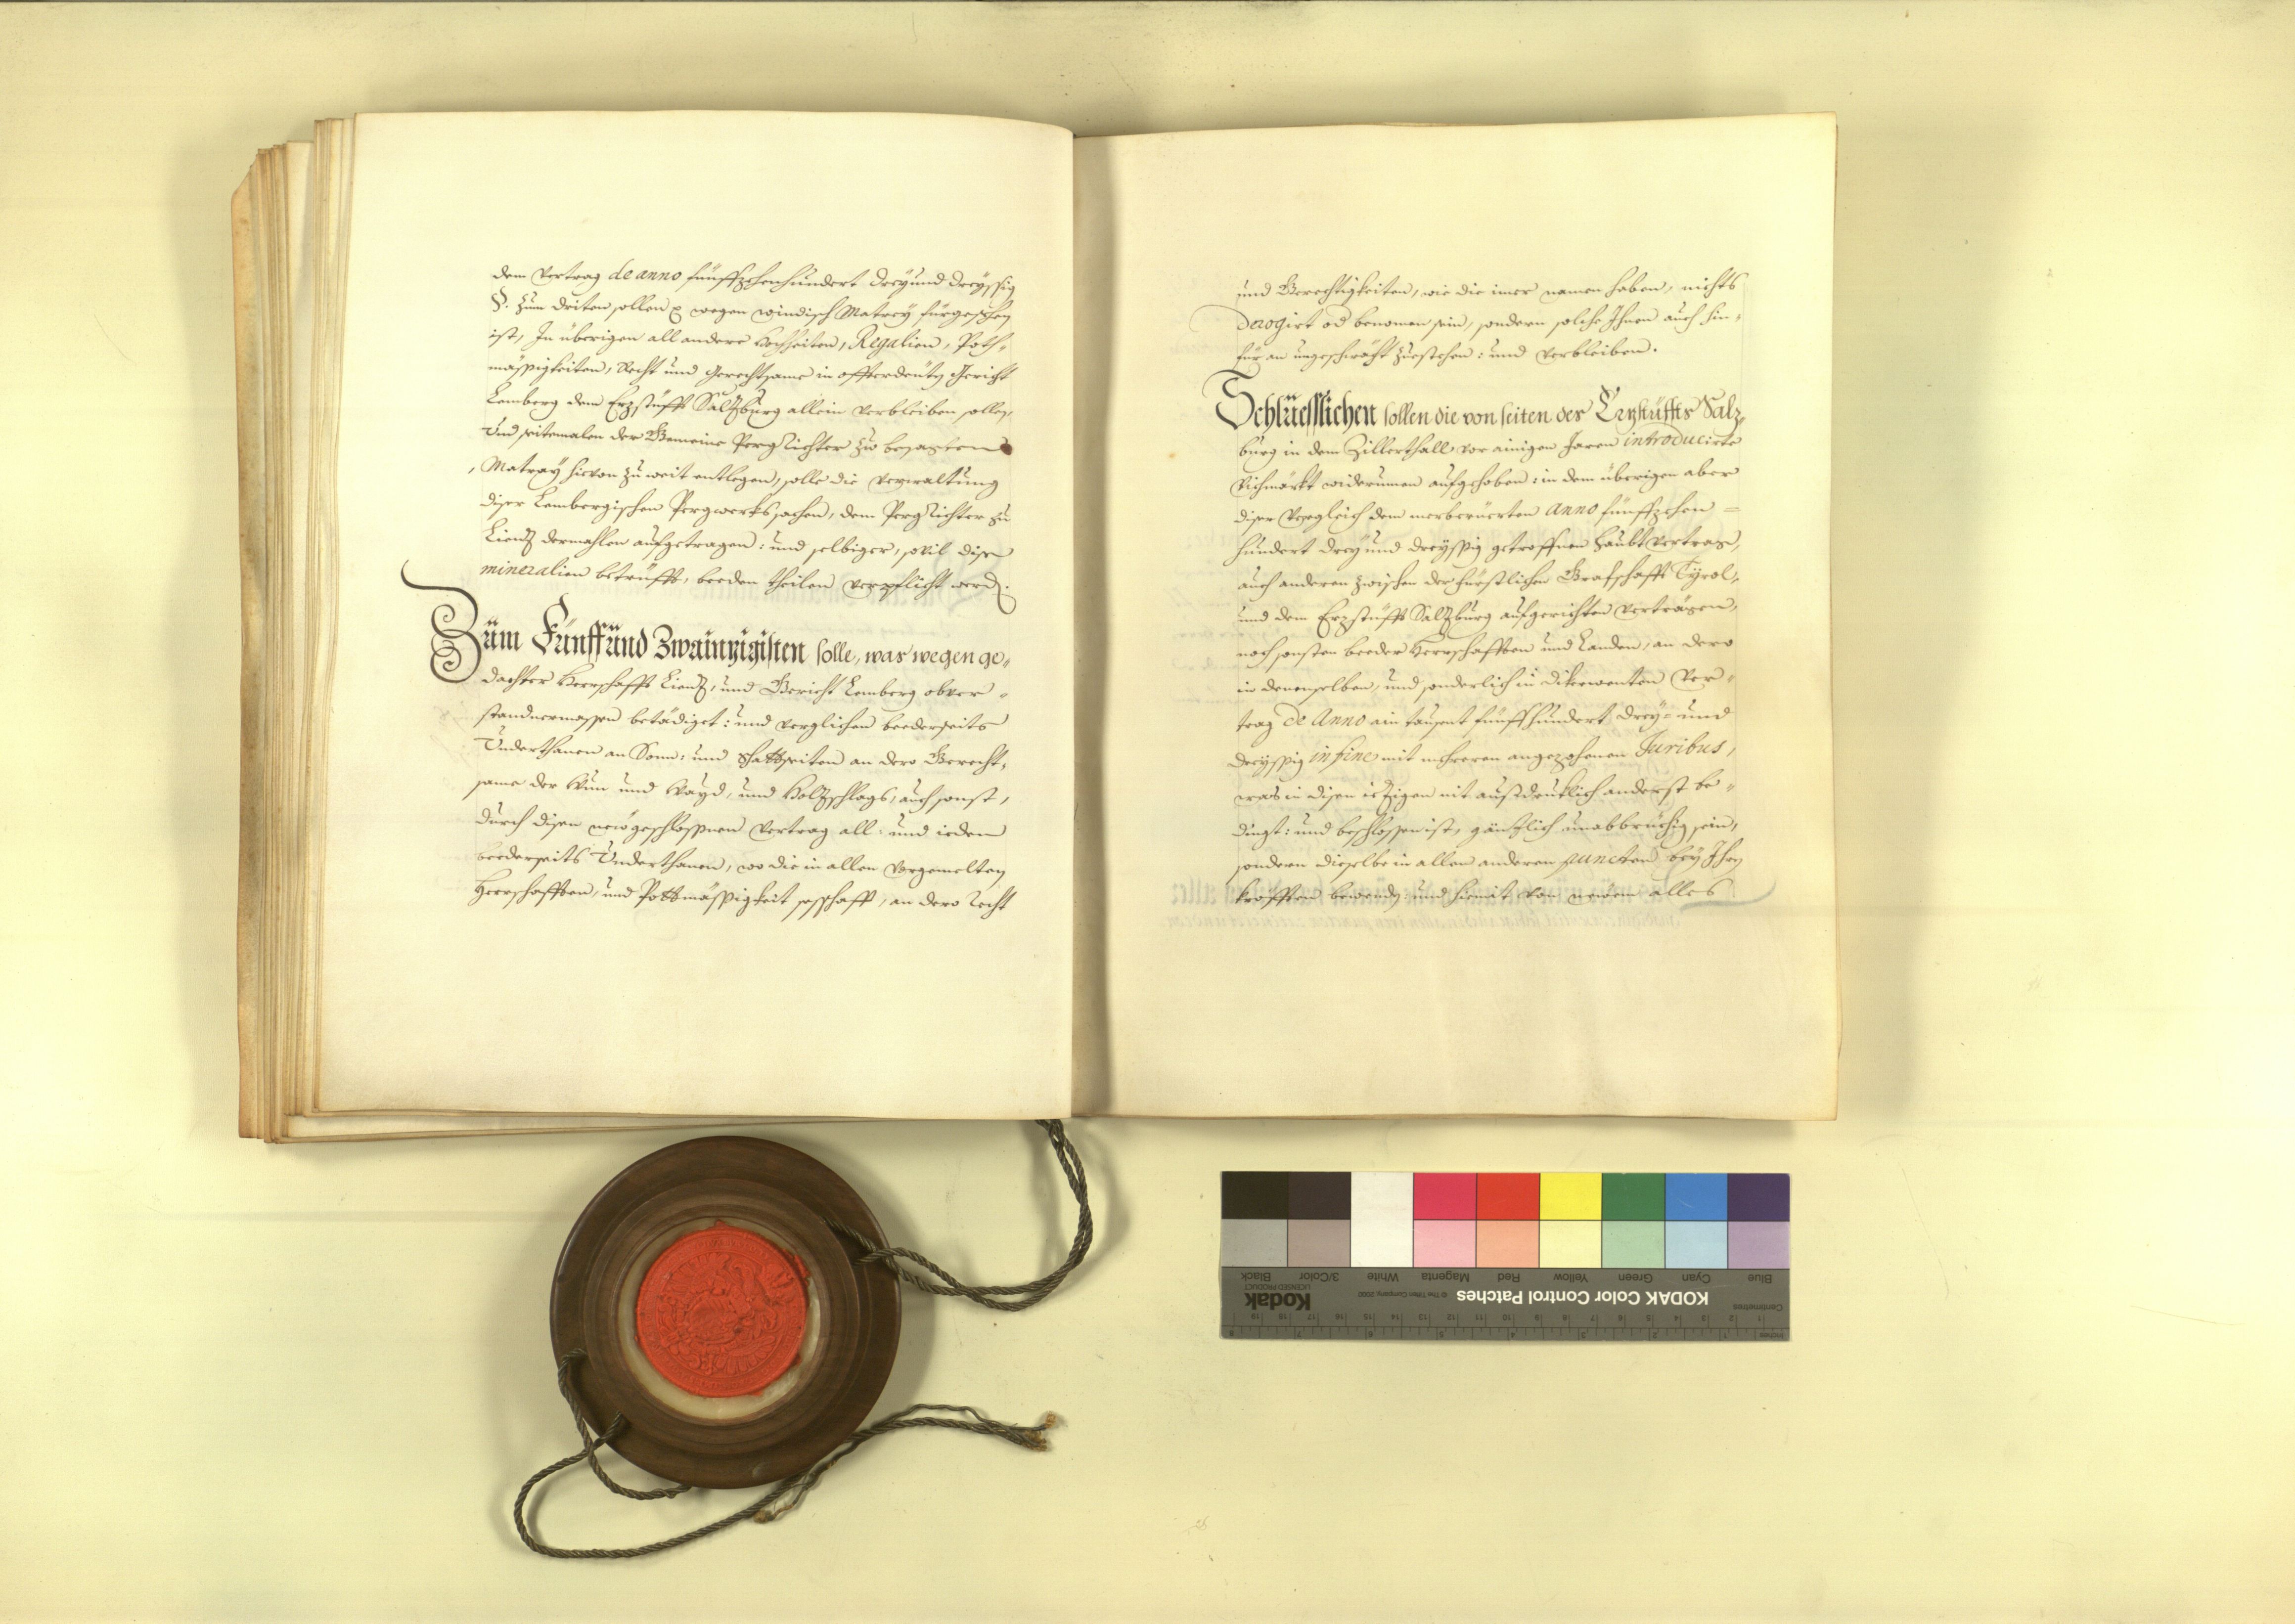 dem Vertrag de anno fünffzehenhundert dreÿund dreÿssig
§. Zum driten sollen wegen windisch Matreÿ fürgesehen
ist, In überigen all andere Hochheiten, Regalien, Poth-
mässigkeiten, Recht und Gerechtsame in offterdeütn Gericht
Lemberg dem Erzstüfft Salzburg allein verbleiben sollen,
Und seitemalen der Gemeine Pergrichter zu besagtem
Matraÿ hievon zu weit entlegen, solle die verwaltung
diser Lembergischen Pergwerkssachen, dem Pergrichter zu
Lienz dermahlen aufgetragen: und selbiger, sovil dise
mineralien betrüfft, beeden theilen verpflicht werdn.
Züm Fünffünd Zwainzigisten solle, was wegen ge-
dachter Herrschafft Lienz, und Gericht Lemberg obver-
standnermassen betädiget: und verglichen beederseits
Underthanen an Sonn: und Schattseiten an dero Gerecht-
same der Wun und Wayd, und Holzschlags, auch sonst,
durch disen neügeschlossnen Vertrag all: und ieden
beederseits Underthanen, wo die in allen vorgemelten
Herrschafften, und Pottmässigkeit sesshafft, an dero Recht
und Gerechtigkeiten, wie die imer namen haben, nichts
derogirt od benomen sein, sondern solche Ihnen auch hin-
für an ungeschwächt zuestehen: und verbleiben.
Schlüesslichen sollen die von seiten des Erzstüffts Salz-
burg in dem Zillerthall vor ainigen Jaren introducirte
Vichmärkt widerumen aufgehoben: in dem überigen aber
diser Vergleich dem merberüerten anno fünffzehen=
hundert dreÿ und dreÿssig getroffnen Haubtvertrag,
auch anderen zwischen der fürstlichen Grafschafft Tÿrol,
und dem Erzstüfft Salzburg aufgerichten Verträgen,
noch sonsten beeder Herrschafften und Landen, an dero
in denenselben, und sonderlich in dikerwenten Ver-
trag de Anno ain tausent fünffhundert dreÿ= und
dreÿssig in fine mit mehreren angezohenen Juribus,
was in disen ietzigen nit außdruklich anderst be-
dingt: und beschlossen ist, gänzlich unabbrüchig sein,
sondern dieselbe in allen anderen puncten beÿ Ihren
kräfften bewendn: und hiemit von neüem alles
KODAK Color Control Patches
Kodak
LICENSED PRODUCT
© The Tiffen Company, 2000
Centimetres
Inches
Blue Cyan Green Yellow Red Magenta White 3/Color Black